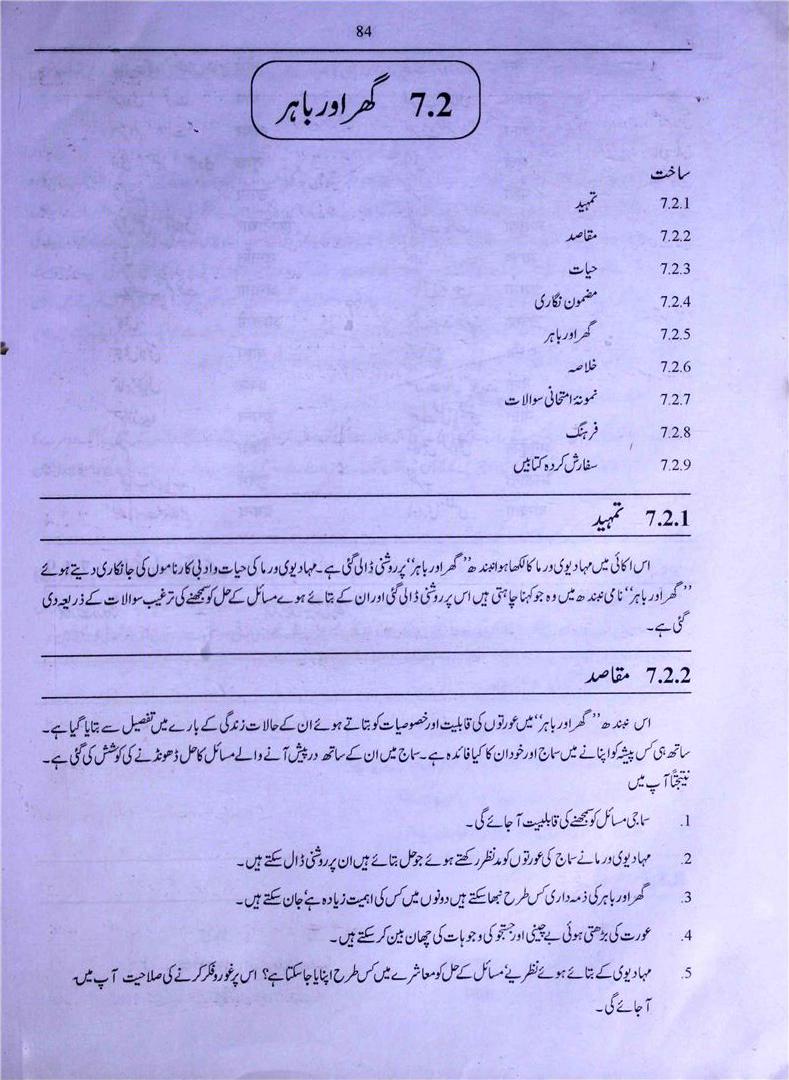 84
7.2 گھر اور باہر
ساخت
7.2.1 تمہید
7.2.2 مقاصد
7.2.3 حیات
7.2.4 مضمون نگاری
7.2.5 گھر اور باہر
7.2.6 خلاصہ
7.2.7 نمونۂ امتحانی سوالات
7.2.8 فرہنگ
7.2.9 سفارش کردہ کتابیں
7.2.1 تمہید
اس اکائی میں مہادیوی ورما کا لکھا ہوا نبندھ ’’گھر اور باہر‘‘ پر روشنی ڈالی گئی ہے۔ مہادیوی ورما کی حیات و ادبی کارناموں کی جانکاری دیتے ہوئے
’’گھر اور باہر‘‘ نامی نبندھ میں وہ جو کہنا چاہتی ہیں اس پر روشنی ڈالی گئی اور ان کے بتائے ہوے مسائل کے حل کو سمجھنے کی ترغیب سوالات کے ذریعہ دی
گئی ہے۔
7.2.2 مقاصد
اس نبندھ ’’گھر اور باہر‘‘ میں عورتوں کی قابلیت اور خصوصیات کو بتاتے ہوئے ان کے حالات زندگی کے بارے میں تفصیل سے بتایا گیا ہے۔
ساتھ ہی کس پیشہ کو اپنانے میں سماج اور خود ان کا کیا فائدہ ہے۔ سماج میں ان کے ساتھ درپیش آنے والے مسائل کا حل ڈھونڈنے کی کوشش کی گئی ہے۔
نتیجتاً آپ میں
1. سماجی مسائل کو سمجھنے کی قابلیت آجائے گی۔
2. مہادیوی ورما نے سماج کی عورتوں کو مدنظر رکھتے ہوئے جو حل بتائے ہیں ان پر روشنی ڈال سکتے ہیں۔
3. گھر اور باہر کی ذمہ داری کس طرح نبھا سکتے ہیں دونوں میں کس کی اہمیت زیادہ ہے‘ جان سکتے ہیں۔
4. عورت کی بڑھتی ہوئی بے چینی اور جستجو کی وجوہات کی چھان بین کر سکتے ہیں۔
5. مہادیوی کے بتائے ہوئے نظریے‘ مسائل کے حل کو معاشرے میں کس طرح اپنایا جا سکتا ہے؟ اس پر غور و فکر کرنے کی صلاحیت آپ میں
آجائے گی۔